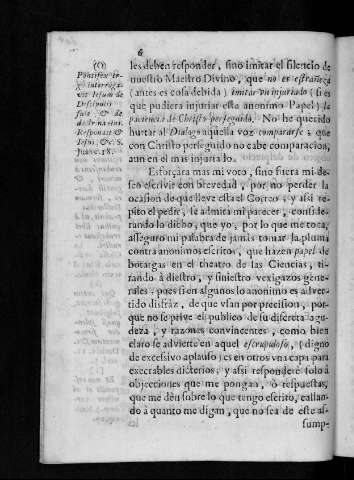 6
les deben responder, sino imitar el silencio de
nuestro Maestro Divino, que no es estrañeza
(antes es cosa debida) imitar un injuriado (si es
que pudiera injuriar este anonimo Papel) la
paciencia de Christo perseguido. No he querido
hurtar al Dialogo aquella voz compararse; que
con Christo perseguido no cabe comparacion,
aun en el mas injuriado.
Esforçara mas mi voto, sino fuera mi de-
seo escrivir con brevedad, por no perder la
ocasion de que lleve esta el Correo; y assi re-
pito el pedir, se admita mi parecer, conside-
rando lo dicho, que yo, por lo que me toca,
asseguro mi palabra de jamàs tomar la pluma
contra anonimos escritos, que hazen papel de
botargas en el theatro de las Ciencias, ti-
rando à diestro, y siniestro vexigazos gene-
rales: pues si en algunos lo anonimo es adver-
tido disfraz, de que usan por precision, por-
que no se prive el publico de su discreta agu-
deza, y razones convincentes, como bien
claro se advierte en aquel escrupuloso, (digno
de excesivo aplauso) es en otros una capa para
execrables dicterios; y assi responderè solo à
objecciones que me pongan, ò respuestas,
que me dèn sobre lo que tengo escrito, callan-
do à quanto me digan, que no sea de este as-
sump-
(O)
Pontifex er-
gò interroga-
vit Iesum de
Discipulis
suis, & de
doctrina eius.
Respondit &
Iesus, &c. S.
Juan c. 18.